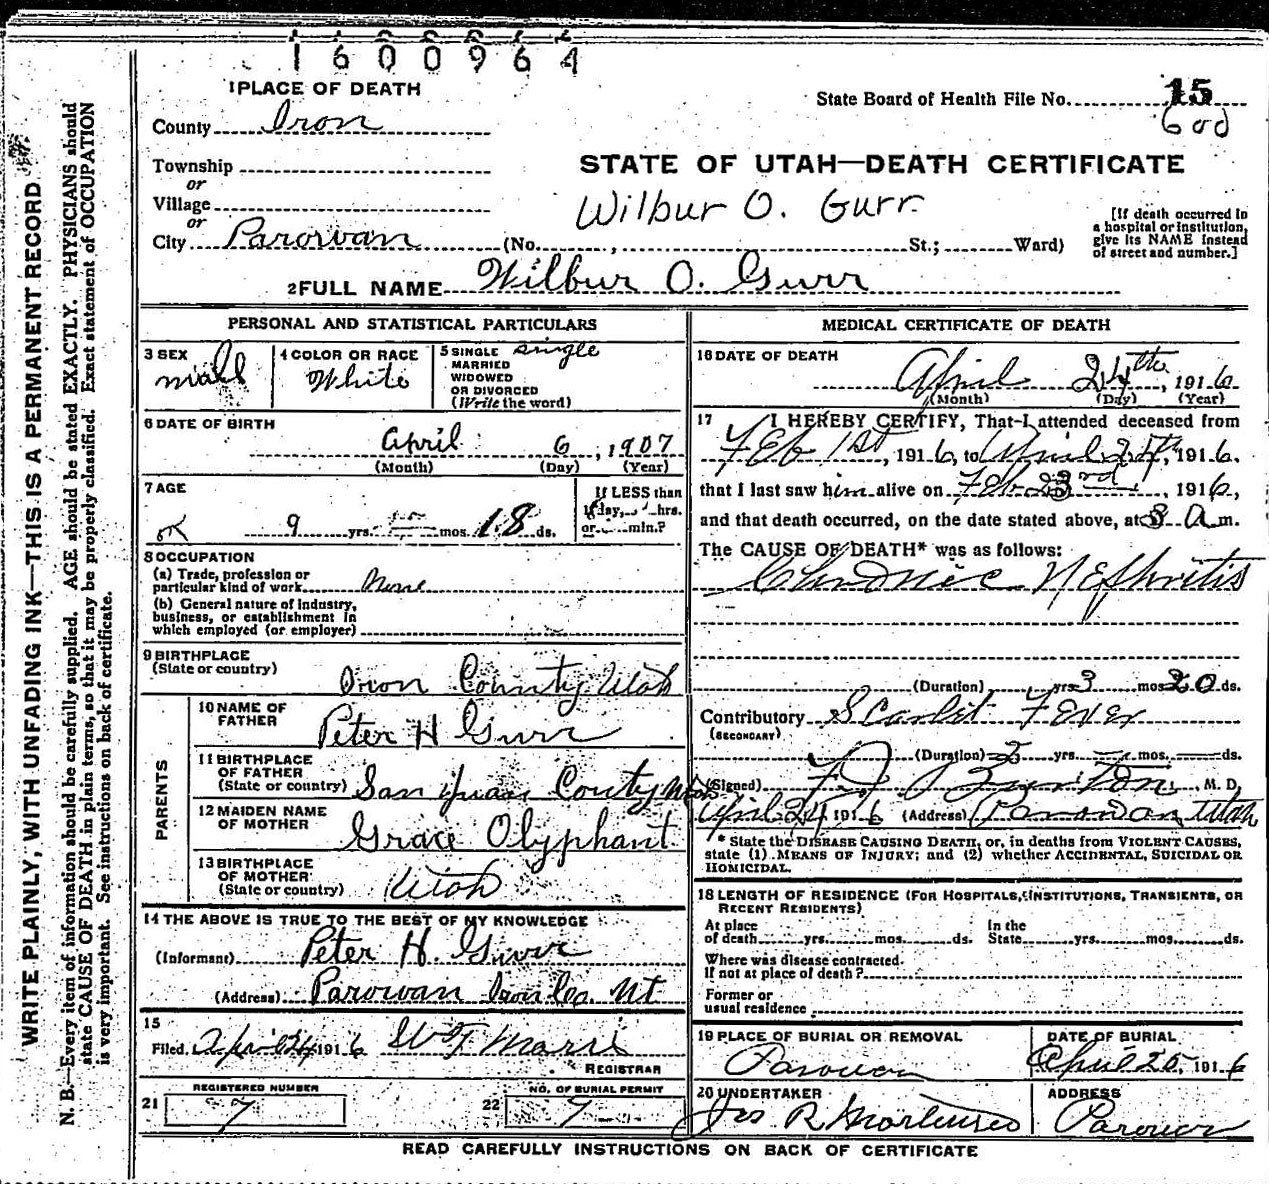 1600964
1 PLACE OF DEATH
State Board of Health File No. 15
County Iron
60d
Township
or
STATE OF UTAH—DEATH CERTIFICATE
Village
or
Wilbur O. Gurr
[If death occurred in a hospital or institution, give its NAME instead of street and number.]
City Parowan (No. , St.; Ward)
2 FULL NAME Wilbur O. Gurr
PERSONAL AND STATISTICAL PARTICULARS
3 SEX male
4 COLOR OR RACE White
5 SINGLE single
MARRIED
WIDOWED
OR DIVORCED
(Write the word)
6 DATE OF BIRTH
April 6, 1907
(Month) (Day) (Year)
7 AGE
If LESS than
1 day, hrs.
ok 9 yrs. — mos. 18 ds. or min.?
8 OCCUPATION
(a) Trade, profession or
particular kind of work None
(b) General nature of industry,
business, or establishment in
which employed (or employer)
9 BIRTHPLACE
(State or country) Iron County Utah
PARENTS
10 NAME OF
FATHER Peter H Gurr
11 BIRTHPLACE
OF FATHER
(State or country) San Juan County Utah
12 MAIDEN NAME
OF MOTHER Grace Olyphant
13 BIRTHPLACE
OF MOTHER
(State or country) Utah
14 THE ABOVE IS TRUE TO THE BEST OF MY KNOWLEDGE
(Informant) Peter H. Gurr
(Address) Parowan Iron Co. Ut
15
Filed April 24 1916
REGISTRAR
REGISTERED NUMBER
21 7
NO. OF BURIAL PERMIT
22 7
MEDICAL CERTIFICATE OF DEATH
16 DATE OF DEATH
April 24th, 1916
(Month) (Day) (Year)
17 I HEREBY CERTIFY, That I attended deceased from
Feb 1st, 1916, to April 24th, 1916.
that I last saw him alive on Feb 23rd, 1916,
and that death occurred, on the date stated above, at 3 A m.
The CAUSE OF DEATH* was as follows:
Chronic Nephritis
(Duration) yrs 3 mos 20 ds.
Contributory Scarlet Fever
(SECONDARY)
(Duration) 3 yrs. — mos. — ds.
(Signed) Burton, M. D.
April 24 1916 (Address) Parowan Utah
* State the DISEASE CAUSING DEATH, or, in deaths from VIOLENT CAUSES,
state (1) MEANS OF INJURY; and (2) whether ACCIDENTAL, SUICIDAL OR
HOMICIDAL.
18 LENGTH OF RESIDENCE (FOR HOSPITALS, INSTITUTIONS, TRANSIENTS, OR
RECENT RESIDENTS)
At place In the
of death yrs. mos. ds. State yrs. mos. ds.
Where was disease contracted.
If not at place of death?
Former or
usual residence
19 PLACE OF BURIAL OR REMOVAL
Parowan
DATE OF BURIAL
April 25, 1916
20 UNDERTAKER
R Mortensen
ADDRESS
Parowan
READ CAREFULLY INSTRUCTIONS ON BACK OF CERTIFICATE
WRITE PLAINLY, WITH UNFADING INK—THIS IS A PERMANENT RECORD
N. B.—Every item of information should be carefully supplied. AGE should be stated EXACTLY. PHYSICIANS should
state CAUSE OF DEATH in plain terms, so that it may be properly classified. Exact statement of OCCUPATION
is very important. See instructions on back of certificate.